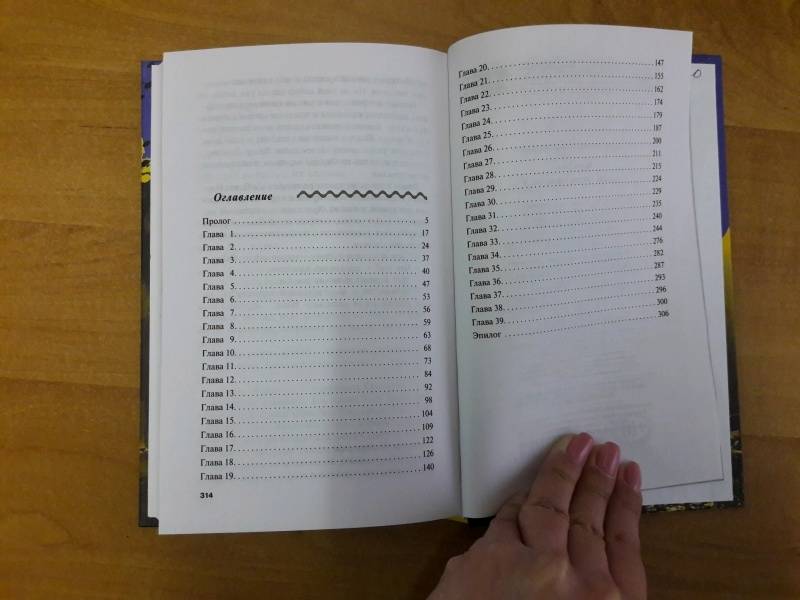 Оглавление
Пролог 5
Глава 1. 17
Глава 2. 24
Глава 3. 37
Глава 4. 40
Глава 5. 47
Глава 6. 53
Глава 7. 56
Глава 8. 59
Глава 9. 63
Глава 10. 68
Глава 11. 73
Глава 12. 84
Глава 13. 92
Глава 14. 98
Глава 15. 104
Глава 16. 109
Глава 17. 122
Глава 18. 126
Глава 19. 140
314
Глава 20. 147
Глава 21. 155
Глава 22. 162
Глава 23. 174
Глава 24. 179
Глава 25. 187
Глава 26. 200
Глава 27. 211
Глава 28. 215
Глава 29. 224
Глава 30. 229
Глава 31. 235
Глава 32. 240
Глава 33. 244
Глава 34. 276
Глава 35. 282
Глава 36. 287
Глава 37. 293
Глава 38. 296
Глава 39. 300
Эпилог 306